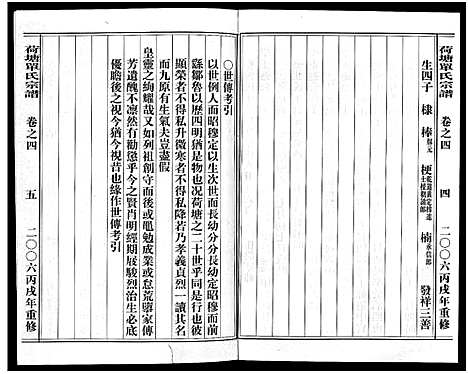 荷塘單氏宗譜
卷之四
四
二〇〇六丙戌年重修
生四子 棣 棒 解元 梗 楠 承信郎 發祥三善
〇世傳考引
以世例人而昭穆定以生次世而長幼分分長幼定昭穆而前
緜鄒魯以歷四明猶是物也況荷塘之二十世乎同是行也彼
顯榮者不得私升微寒者不得私降若乃孝義貞烈一行其名
而九原有生氣夫豈盡假
皇靈之絢耀哉又如列祖創守而或黽勉成業或怠荒隳家傳
芳遺醜不凛然有勸懲乎今之賢肖明經期展駿烈治生必底
優贍後之視今猶今視昔也緣作世傳考引
荷塘單氏宗譜
卷之四
五
二〇〇六丙戌年重修